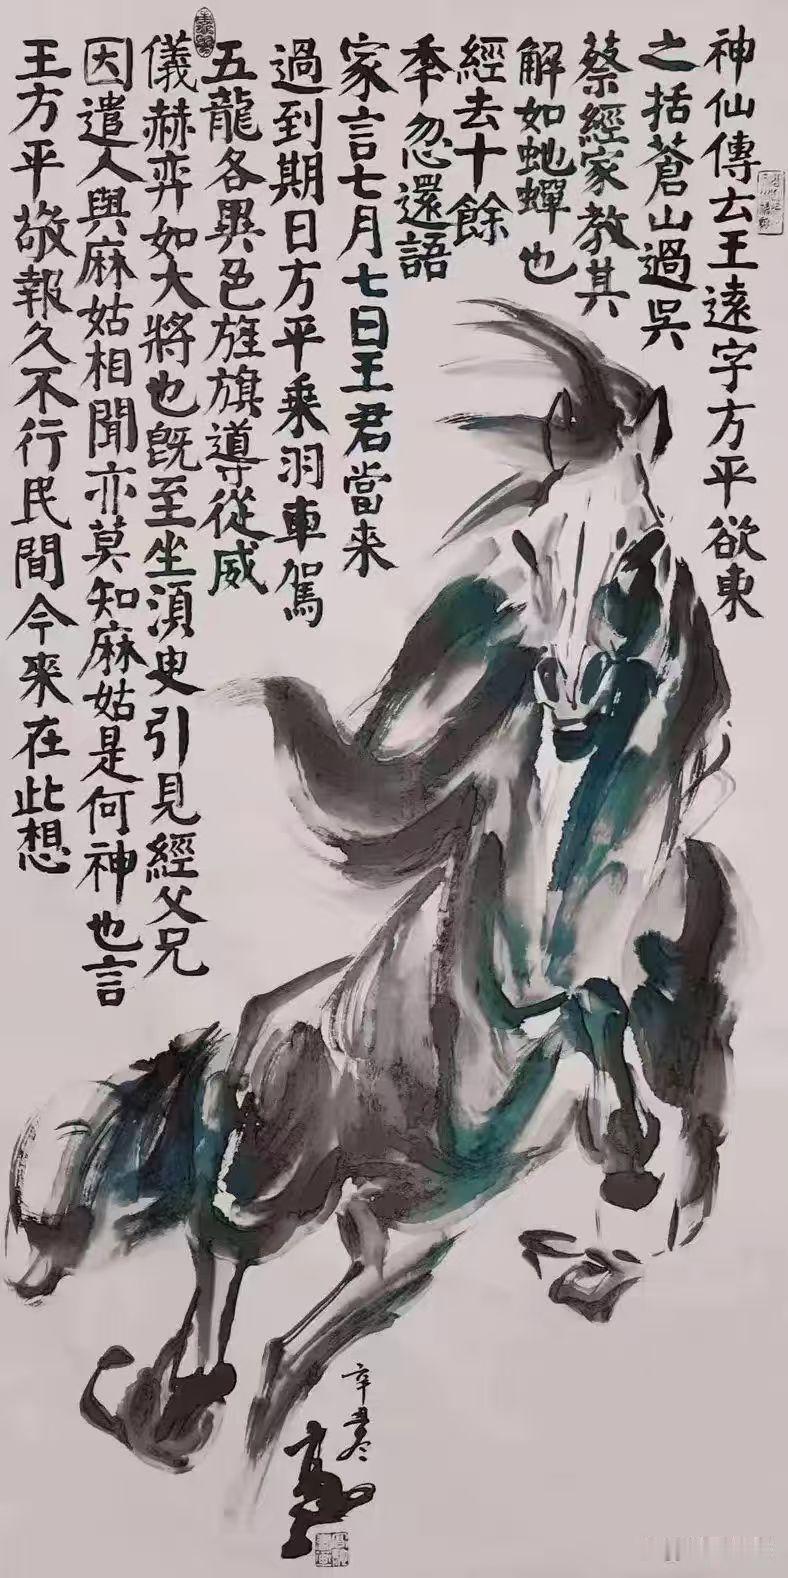 神仙傳云王遠字方平欲東
之括蒼山過吳
蔡經家教其
解如虵蟬也
經去十餘
秊忽還語
家言七月七日王君當来
過到期日方平乗羽車駕
五龍各異色旌旗導從威
儀赫弈如大將也既至坐湏臾引見經父兄
因遣人與麻姑相聞亦莫知麻姑是何神也言
王方平敬報久不行民間今來在此想
辛丑冬